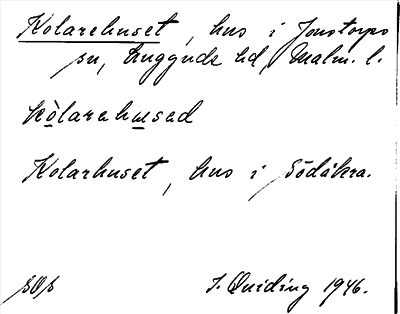 Kolarehuset, hus i Jonstorps
sn, Luggude hd, Malm. l.
kòlarehused
Kolarhuset, hus i Södåkra.
SOS J. Quiding 1946.